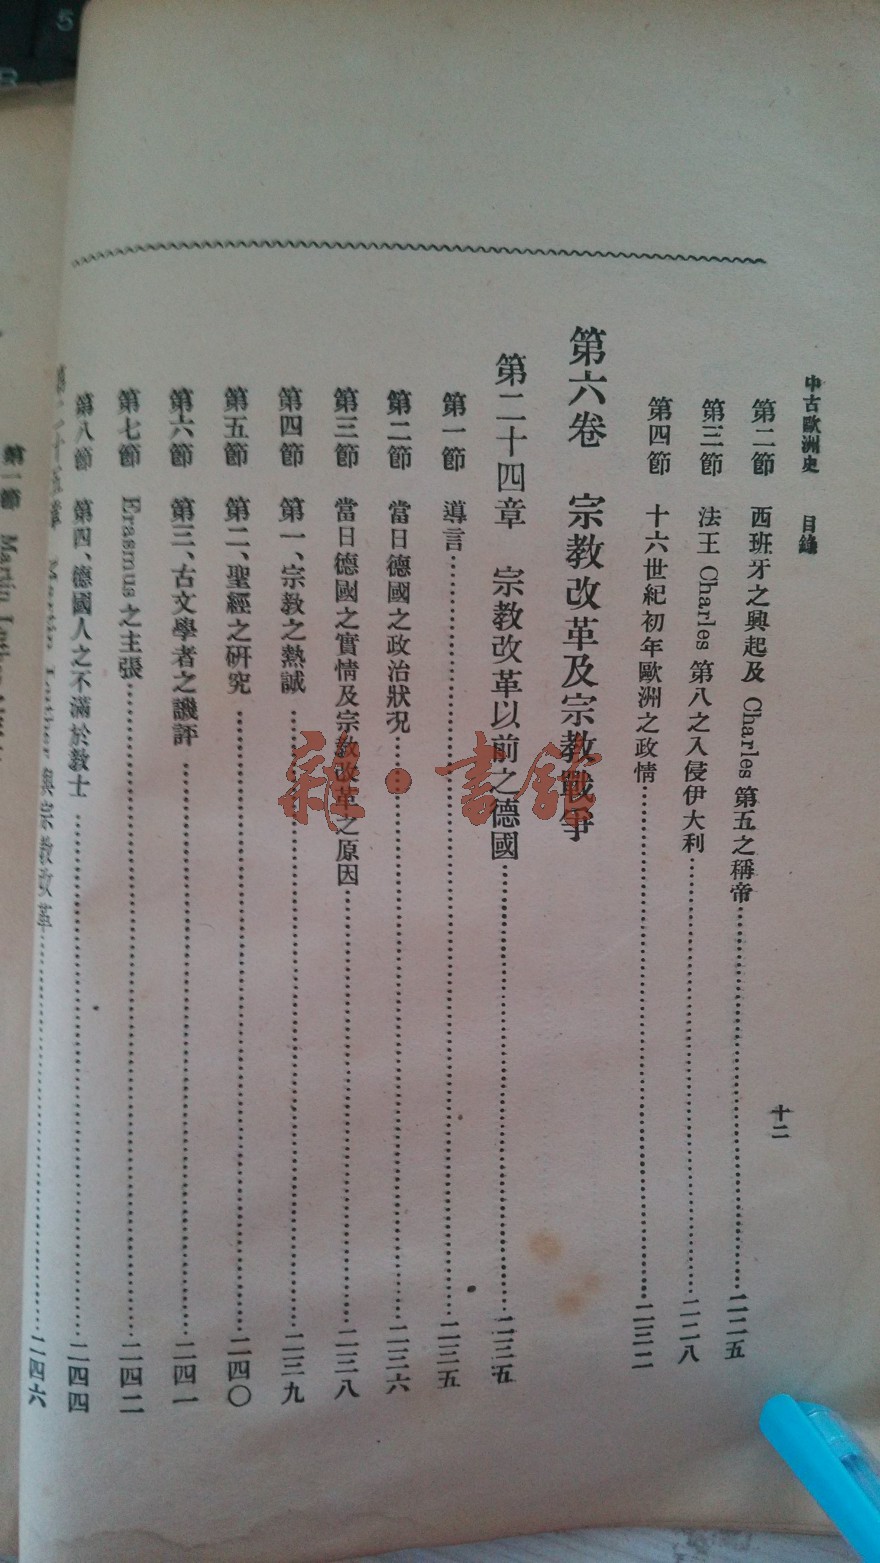 中古歐洲史 目錄
十二
第二節 西班牙之興起及 Charles 第五之稱帝……二二五
第三節 法王 Charles 第八之入侵伊大利……二二八
第四節 十六世紀初年歐洲之政情……二三二
第六卷 宗教改革及宗教戰爭
第二十四章 宗教改革以前之德國……二三五
第一節 導言……二三五
第二節 當日德國之政治狀況……二三六
第三節 當日德國之實情及宗教改革之原因……二三八
第四節 第一、宗教之熱誠……二三九
第五節 第二、聖經之研究……二四〇
第六節 第三、古文學者之譏評……二四一
第七節 Erasmus 之主張……二四二
第八節 第四、德國人之不滿於教士……二四四
Martin Luther 與宗教改革……二四六
第一節 Martin
雜·書館